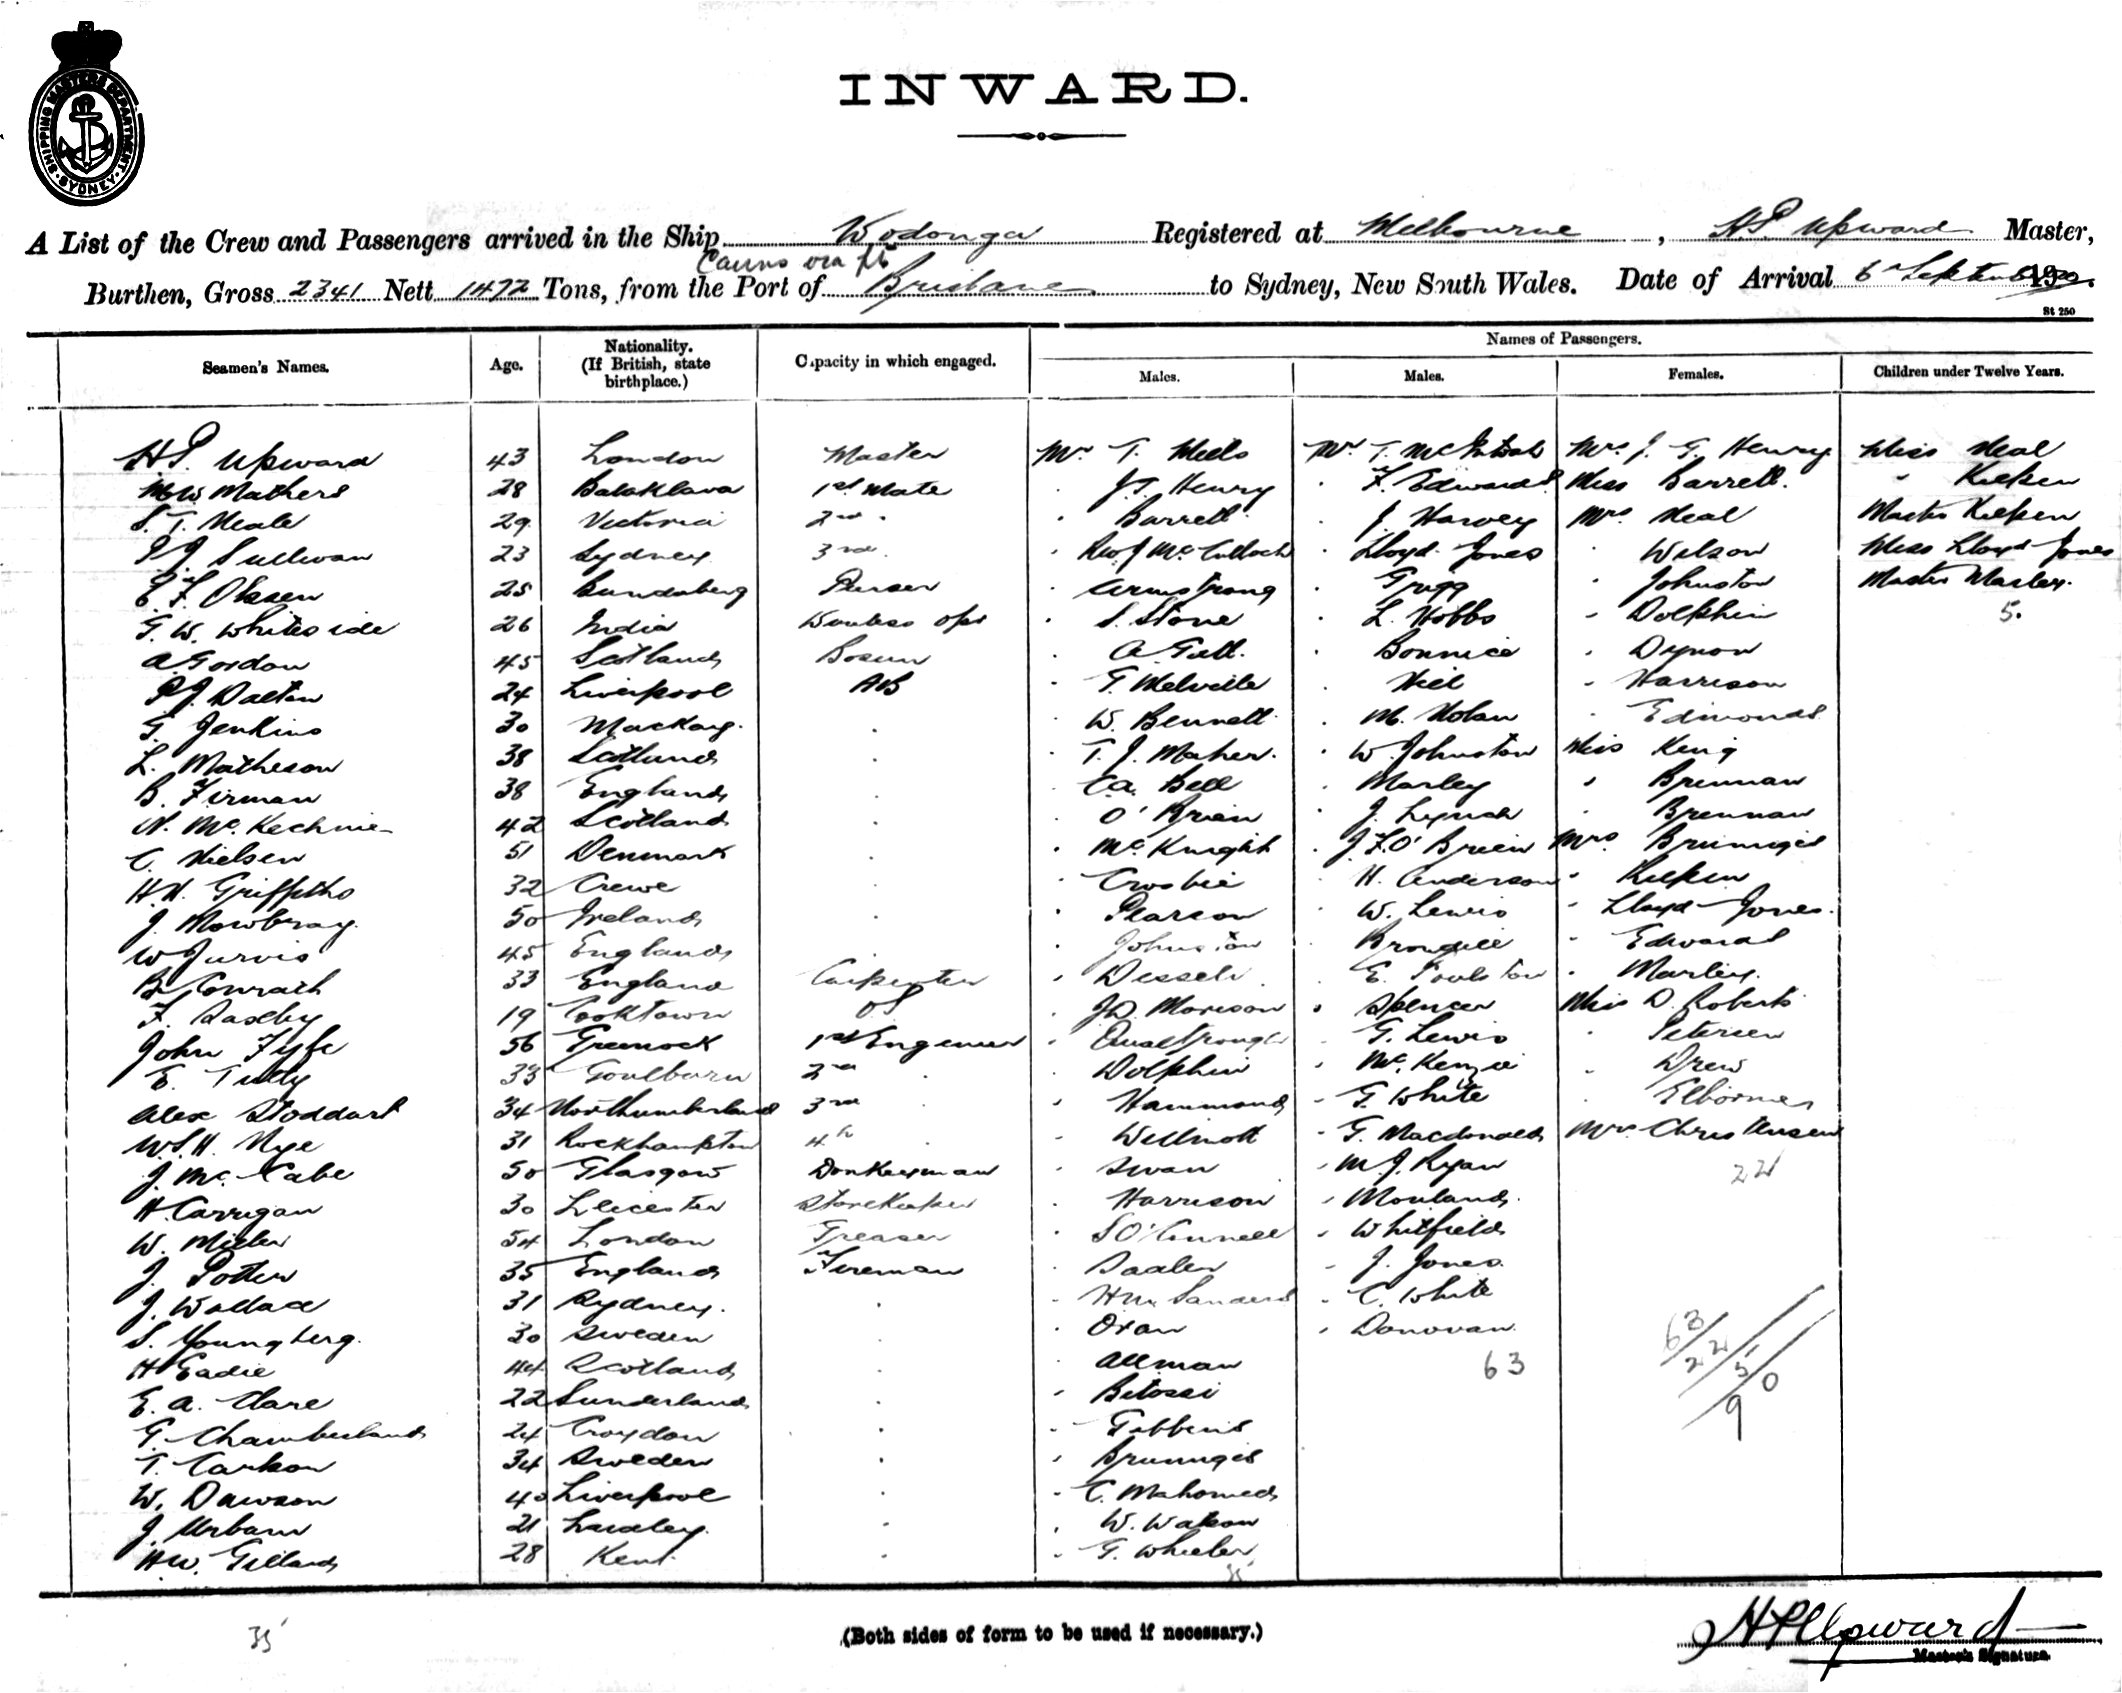 SHIPPING MASTERS DEPARTMENT
SYDNEY
INWARD.
A List of the Crew and Passengers arrived in the Ship Wodonga Registered at Melbourne, H.P. Upward Master,
Cairns via pts
Burthen, Gross 2341 Nett 1472 Tons, from the Port of Brisbane to Sydney, New South Wales. Date of Arrival 6th September 190 .
St 250
Seamen's Names. Age. Nationality. (If British, state birthplace.) Capacity in which engaged. Names of Passengers.
Males. Males. Females. Children under Twelve Years.
H.P. Upward 43 London Master Mr T. Mills Mr T. McIntosh Mrs J. G. Henry Miss Neal
M.W. Mathers 28 Balaklava 1st Mate . J.T. Henry . F. Edwards Miss Barrett. " Kilpen
S. T. Neale 29 Victoria 2nd " . Barrett . J. Harvey Mrs Neal Master Kilpen
P.J. Sullivan 23 Sydney 3rd . Rev J McCulloch . Lloyd-Jones . Wilson Miss Lloyd-Jones
E. F. Olsen 25 Bundaberg Purser . Armstrong . Grigg . Johnston Master Marley.
G. W. Whiteside 26 India Wireless opr . S. Stone . L. Hobbs . Dolphin 5.
A Gordon 45 Scotland Bosun . A Gall. . Bonnice . Dynon
P.J. Dalton 24 Liverpool AB . G. Melville . Hill . Harrison
G. Jenkins 30 Mackay. . . W. Bennett . M. Nolan . Edmonds
L. Matheson 38 Scotland . . T. J. Maher. . W Johnston Miss King
B. Firman 38 England . . C.A. Bell . Marley . Brennan
N. McKechnie 42 Scotland . . O'Brien . J. Lynch . Brennan
C. Nielsen 51 Denmark . . McKnight . J.F.O'Brien Mrs Brunnigis
H.H. Griffiths 32 Crewe . . Crosbie . H. Anderson . Kilpen
J. Mowbray. 50 Ireland . . Pearson . W. Lewis . Lloyd-Jones.
W Jurvis 45 England . . Johnston . . Edwards
B. Conrath 33 England Carpenter . . E. Poulston . Marley.
F. Saxby 19 Cooktown OS . J.D. Morison . Spencer Miss D. Roberts
John Fyfe 56 Greenock 1st Engineer . . G. Lewis . Petersen
E. Tully 33 Goulburn 2nd . . Dolphin . McKenzie . Drew
Alex Stoddart 34 Northumberland 3rd . Hammond . G. White .
W.S.H. Nye 31 Rockhampton 4th . . Willmott . G. Macdonald Mrs Christensen
J. McCabe 50 Glasgow Donkeyman . Swan . M.J. Ryan 22
H. Carrigan 30 Leicester Storekeeper . Harrison .
W. Miller 54 London Greaser . S O'Connell . Whitfield
J. Potter 35 England Fireman . Sadler . J. Jones.
J. Wallace 31 Sydney. . . Hm Sanders . C. White
S. Youngberg. 30 Sweden . . Oxan . Donovan.
H Eadie 44 Scotland . . Allman 63
E. A. Clare 22 Sunderland . . Bitossi
G. Chamberland 24 Croydon . . Gibbins
T. Carlson 34 Sweden . . Brunnigis
W. Dawson 40 Liverpool . . C. Mahomed
J. Urban 21 Laidley. . . W. Watson
H.W. Gilland 28 Kent. . . G. Wheeler
63/22/5/
90
35
35
(Both sides of form to be used if necessary.)
H P Upward
Master's Signature.